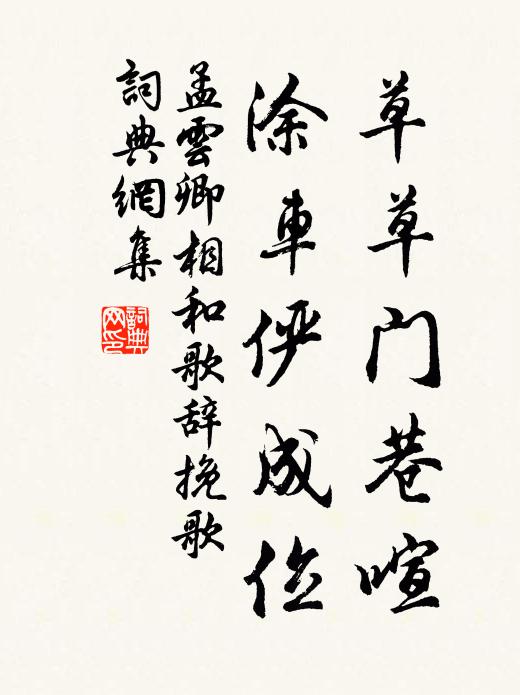 草草門巷喧
涂車俨成位
孟雲卿相和歌辞挽歌
詞典網集
詞典
网印